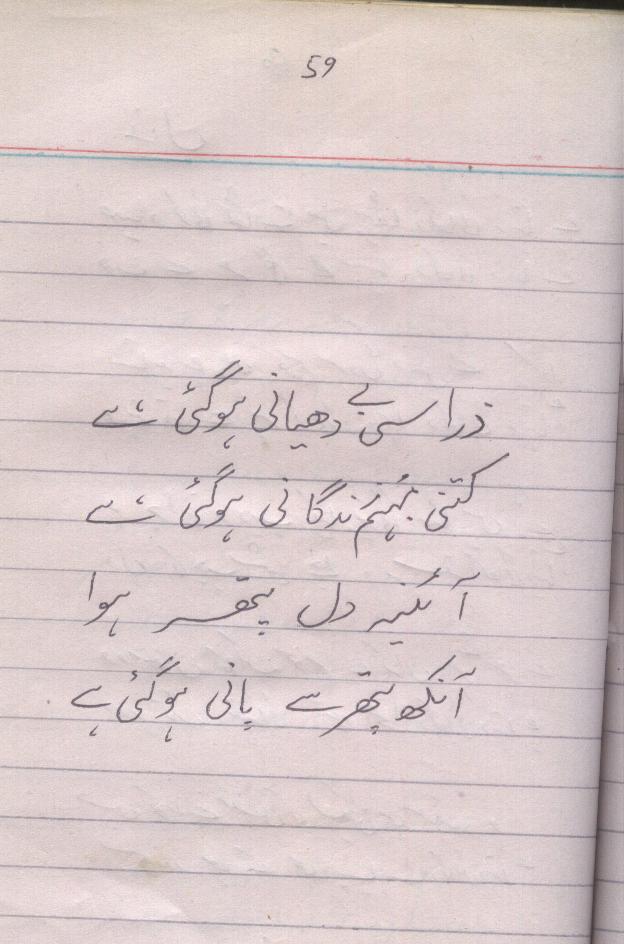 59
ذرا سی بے دھیانی ہوگئی ہے
کتنی مہنگی زندگانی ہوگئی ہے
آئنیہ دل پتھر ہوا
آنکھ پتھر سے پانی ہوگئی ہے